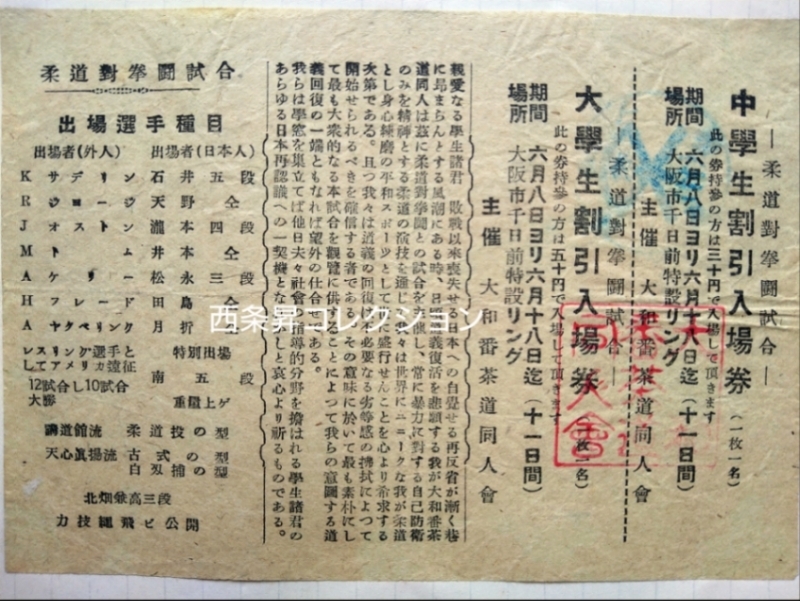 ―柔道對拳闘試合―
中學生割引入場券(一枚一名)
此の券持參の方は三十円で入場して頂きます
期間 六月八日ヨリ六月十八日迄(十一日間)
場所 大阪市千日前特設リング
主催 大和番茶道同人會
―柔道對拳闘試合―
大學生割引入場券(一枚一名)
此の券持參の方は五十円で入場して頂きます
期間 六月八日ヨリ六月十八日迄(十一日間)
場所 大阪市千日前特設リング
主催 大和番茶道同人會
親愛なる學生諸君 敗戰以來喪失せる日本への自覺せる再反省が漸く巷
に昂まらんとする風潮にある時、日
義復活を悲願する我が大和番茶
道同人は茲に柔道對拳闘との試合を
催し、常に暴力に對する自己防衛
のみを精神とする柔道の演技を通じ
々は世界にユニークな我が柔道
とし身心練磨の平和スポーツとして
に盛行せんことを心より希求する
次第である。且つ我々は道義の回復
必要なる劣等感の拂拭によつて
開始せられるべきを確信する者である
その意味に於いて最も素朴にし
て最も大衆的なる本試合を觀覽に供することによつて我らの意圖する道
義回復の一端ともなれば望外の仕合せ
ある。
我らは學窓を巣立てば他日夫々社會
指導的分野を擔はれる學生諸君の
あらゆる日本再認識への一契機とな
しと哀心より祈るものである。
柔道對拳闘試合
出場選手種目
出場者(外人) 出場者(日本人)
K サデリン 石井五段
R ウロージ 天野 仝
J オストン 瀧本四段
M トム 井本 仝
A ケリー 松永三段
H フレード 田島 仝
A ヤクペリング 月折 仝
レスリング選手と 特別出場
してアメリカ遠征
南五段
12試合し10試合
大勝 重量上ゲ
講道館流 柔道投の型
天心眞揚流 古式の型
白刃捕の型
北畑兼高三段
力技繩飛ビ公開
西条昇コレクション